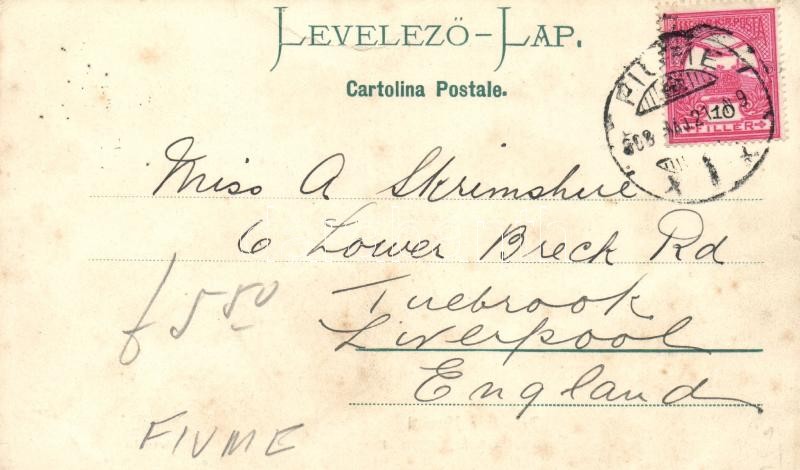 LEVELEZŐ-LAP.
Cartolina Postale.
FIUME
10
FILLER
Miss A Skrimshire
6 Lower Breck Rd
Tuebrook
Liverpool
England
£ 5 80
FIUME